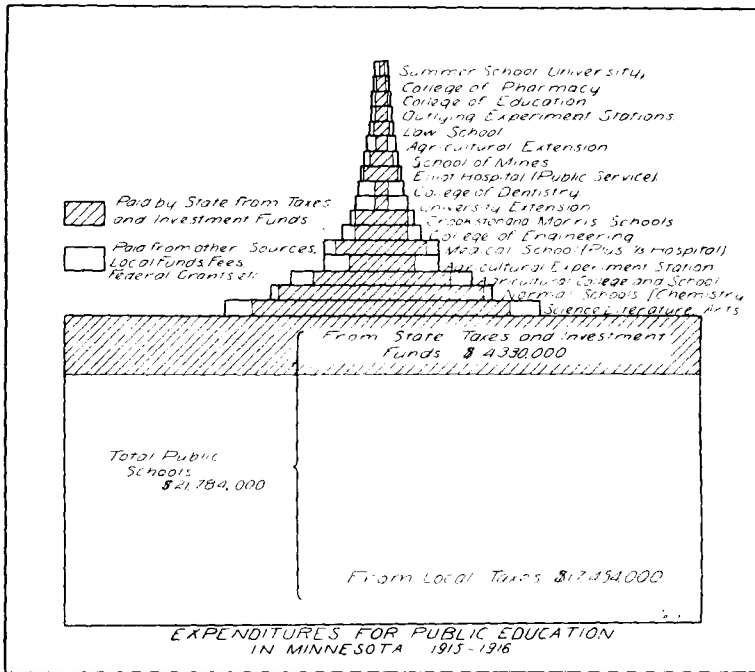 Summer School University,
College of Pharmacy
College of Education
Outlying Experiment Stations
Law School
Agricultural Extension
School of Mines
Elliot Hospital (Public Service)
College of Dentistry
University Extension
Crookston and Morris Schools
College of Engineering
Medical School (Plus Hospital)
Agricultural Experiment Station
Agricultural College and School
Normal Schools [Chemistry
Science Literature Arts
Paid by State from Taxes
and Investment Funds
Paid from other Sources,
Local Funds, Fees,
Federal Grants etc
From State Taxes and Investment
Funds $4330,000
Total Public
Schools
$21,784,000
From Local Taxes $17,454,000
EXPENDITURES FOR PUBLIC EDUCATION
IN MINNESOTA 1915-1916